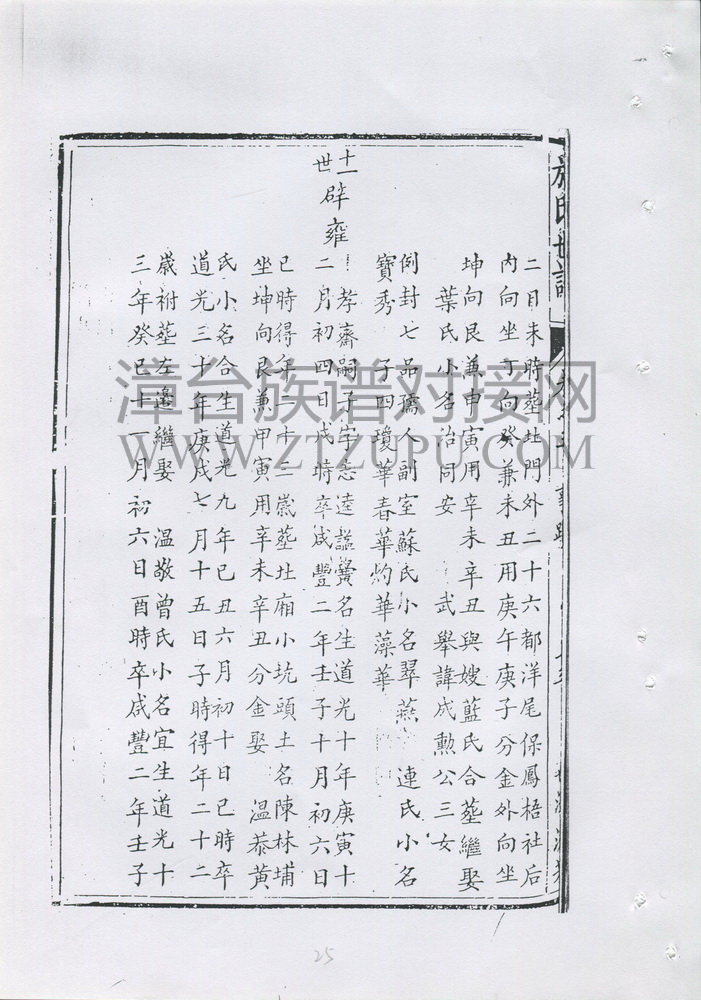 施氏世譜
二日未時葬北門外二十六都洋尾保鳳梧社后
內向坐丁向癸兼未丑用庚午庚子分金外向坐
坤向艮兼申寅用辛未辛丑與嫂藍氏合葬繼娶
葉氏小名治同安 武舉諱成勳公三女
例封七品孺人副室蘇氏小名翠燕 連氏小名
寶秀 子四瓊華春華灼華藻華
十一世
辟雍
孝齋嗣子字志逵謚 名生道光十年庚寅十
二月初四日戌時卒咸豐二年壬子十月初六日
巳時得年二十三歲葬北廂小坑頭土名陳林埔
坐坤向艮兼申寅用辛未辛丑分金娶 溫恭黃
氏小名合生道光九年己丑六月初十日巳時卒
道光三十年庚戌七月十五日子時得年二十二
歲祔葬左邊繼娶 溫敬曾氏小名宜生道光十
三年癸巳十一月初六日酉時卒咸豐二年壬子
漳台族谱对接网
WWW.ZTZUPU.COM
25